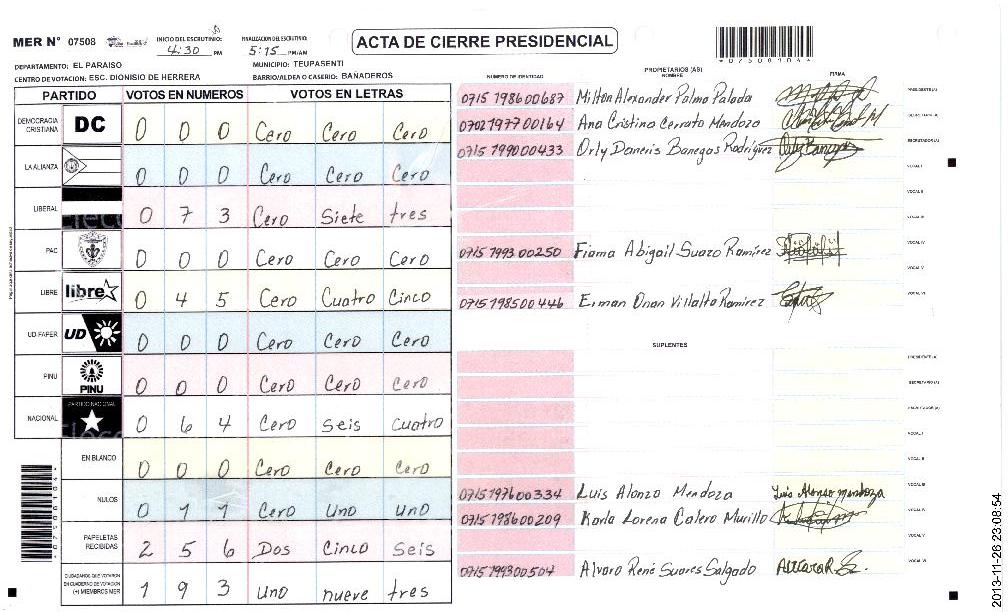 MER N° 07508
INICIO DEL ESCRUTINIO: 4:30 PM
FINALIZACION DEL ESCRUTINIO: 5:15 PM/AM
ACTA DE CIERRE PRESIDENCIAL
DEPARTAMENTO: EL PARAISO
MUNICIPIO: TEUPASENTI
CENTRO DE VOTACION: ESC. DIONISIO DE HERRERA
BARRIO/ALDEA O CASERIO: BANADEROS
PARTIDO VOTOS EN NUMEROS VOTOS EN LETRAS
DEMOCRACIA CRISTIANA DC 0 0 0 Cero Cero Cero
LA ALIANZA 0 0 0 Cero Cero Cero
LIBERAL 0 7 3 Cero Siete tres
PAC 0 0 0 Cero Cero Cero
LIBRE libre 0 4 5 Cero Cuatro Cinco
UD-FAPER UD 0 0 0 Cero Cero Cero
PINU PINU 0 0 0 Cero Cero Cero
NACIONAL PARTIDO NACIONAL 0 6 4 Cero seis cuatro
EN BLANCO 0 0 0 Cero Cero Cero
NULOS 0 1 1 Cero uno uno
PAPELETAS RECIBIDAS 2 5 6 Dos Cinco seis
CIUDADANOS QUE VOTARON EN CUADERNO DE VOTACION (+) MIEMBROS MER 1 9 3 uno nueve tres
PROPRIETARIOS (AS)
NUMERO DE IDENTIDAD NOMBRE FIRMA
0715 1986 00687 Milton Alexander Palma Palada PRESIDENTE(A)
0702 1977 00164 Ana Cristina Cerrato Mendoza SECRETARIO(A)
0715 1990 00433 Orly Daneris Banegas Rodriguez ESCRUTADOR(A)
VOCAL I
VOCAL II
VOCAL III
0715 1993 00250 Fiama Abigail Suazo Ramirez VOCAL IV
VOCAL V
0715 1985 00446 Erman Onan Villalta Ramirez VOCAL VI
SUPLENTES
PRESIDENTE(A)
SECRETARIO(A)
ESCRUTADOR(A)
VOCAL I
VOCAL II
0715 1976 00334 Luis Alonzo Mendoza Luis Alonso mendoza VOCAL III
0715 1986 00209 Karla Lorena Calero Murillo VOCAL IV
VOCAL V
0715 1993 00504 Alvaro René Suares Salgado VOCAL VI
2013-11-26 23:08:54